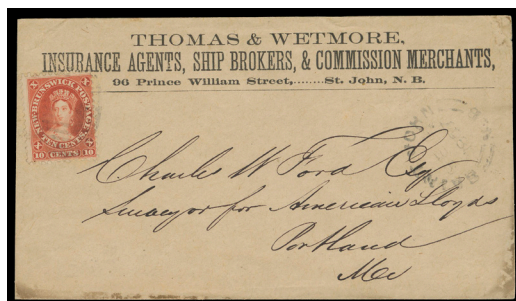 THOMAS & WETMORE,
INSURANCE AGENTS, SHIP BROKERS, & COMMISSION MERCHANTS,
96 Prince William Street,........St. John, N. B.
X X
NEW-BRUNSWICK POSTAGE
TEN CENTS
X X
10 CENTS 10
Charles W Ford Esq
Surveyor for American Lloyds
Portland
Me